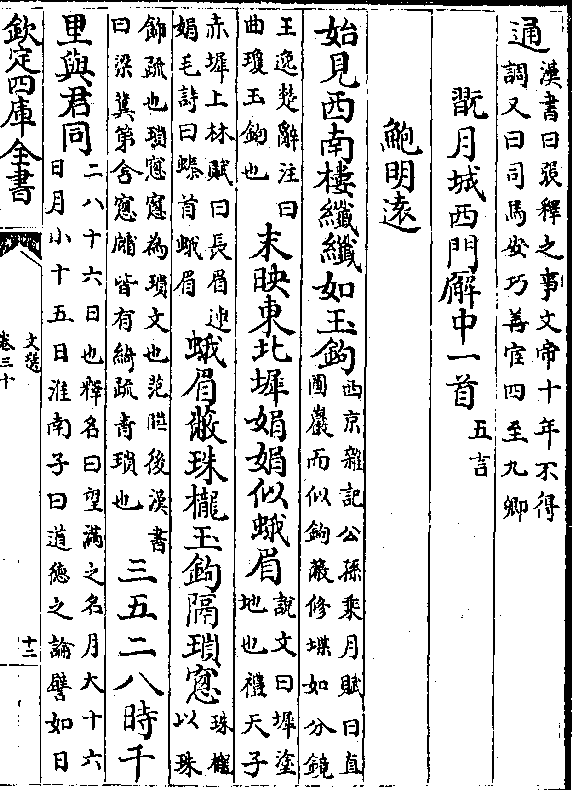 通漢書曰張釋之事文帝十年不得調又曰司馬安巧善宦四至九卿
翫月城西門廨中一首五言
鮑明遠
始見西南樓纖纖如玉鉤西京雜記公孫乘月賦曰直圓巖而似鉤蔽修堞如分鏡
王逸楚辭注曰曲瓊玉鉤也末映東北墀娟娟似蛾眉說文曰墀塗地也禮天子
赤墀上林賦曰長眉連娟毛詩曰螓首蛾眉蛾眉蔽珠櫳玉鉤隔瑣窻珠櫳以珠
飾疏也瑣窻窻為瑣文也范曄後漢書曰梁冀第舍窻牖皆有綺疏青瑣也三五二八時千
里與君同二八十六日也釋名曰望滿之名月大十六日月小十五日淮南子曰道德之論譬如日
欽定四庫全書
文選
卷三十
十二